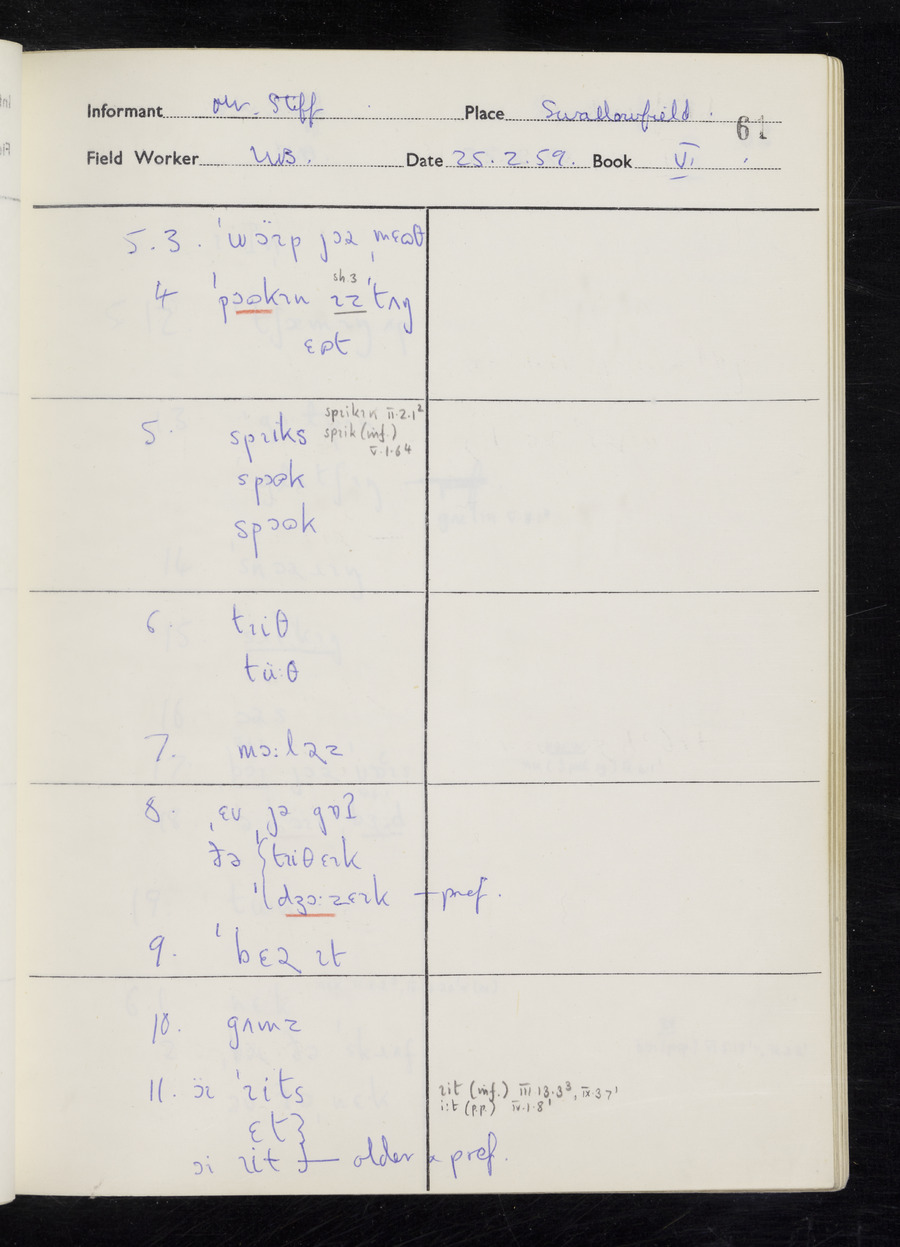 Informant Mr. Stiff Place Swallowfield
61
Field Worker WB. Date 25.2.59. Book VI
5.3. ˈwɔ̈ɹp jəɹ ˌmɛɷθ
4 ˈpɔɷkɪn ɪz ˈtʌŋ
sh.3
ɛɒt
5. spɹiks
spɹikɪn II.2.1²
sprik (inf.)
V.1.6⁴
spɔɷk
spɔɷk
6. tɹiθ
tü:θ
7. mɔ:ləɹz
8. ˌɛv jə gɒʔ
ðə { ˈtɹiθɛɪk
ˈdʒɔ:zɛɪk — pref.
9. ˈbɛəɹ ɪt
10. gʌmz
11. ɔ̈ɪ ˈɹits
ɛt }
ɔi ɹit } — older & pref.
ɹit (inf.) III.13.3³, IX.3.7¹
i:t (p.p.) IV.1.8¹